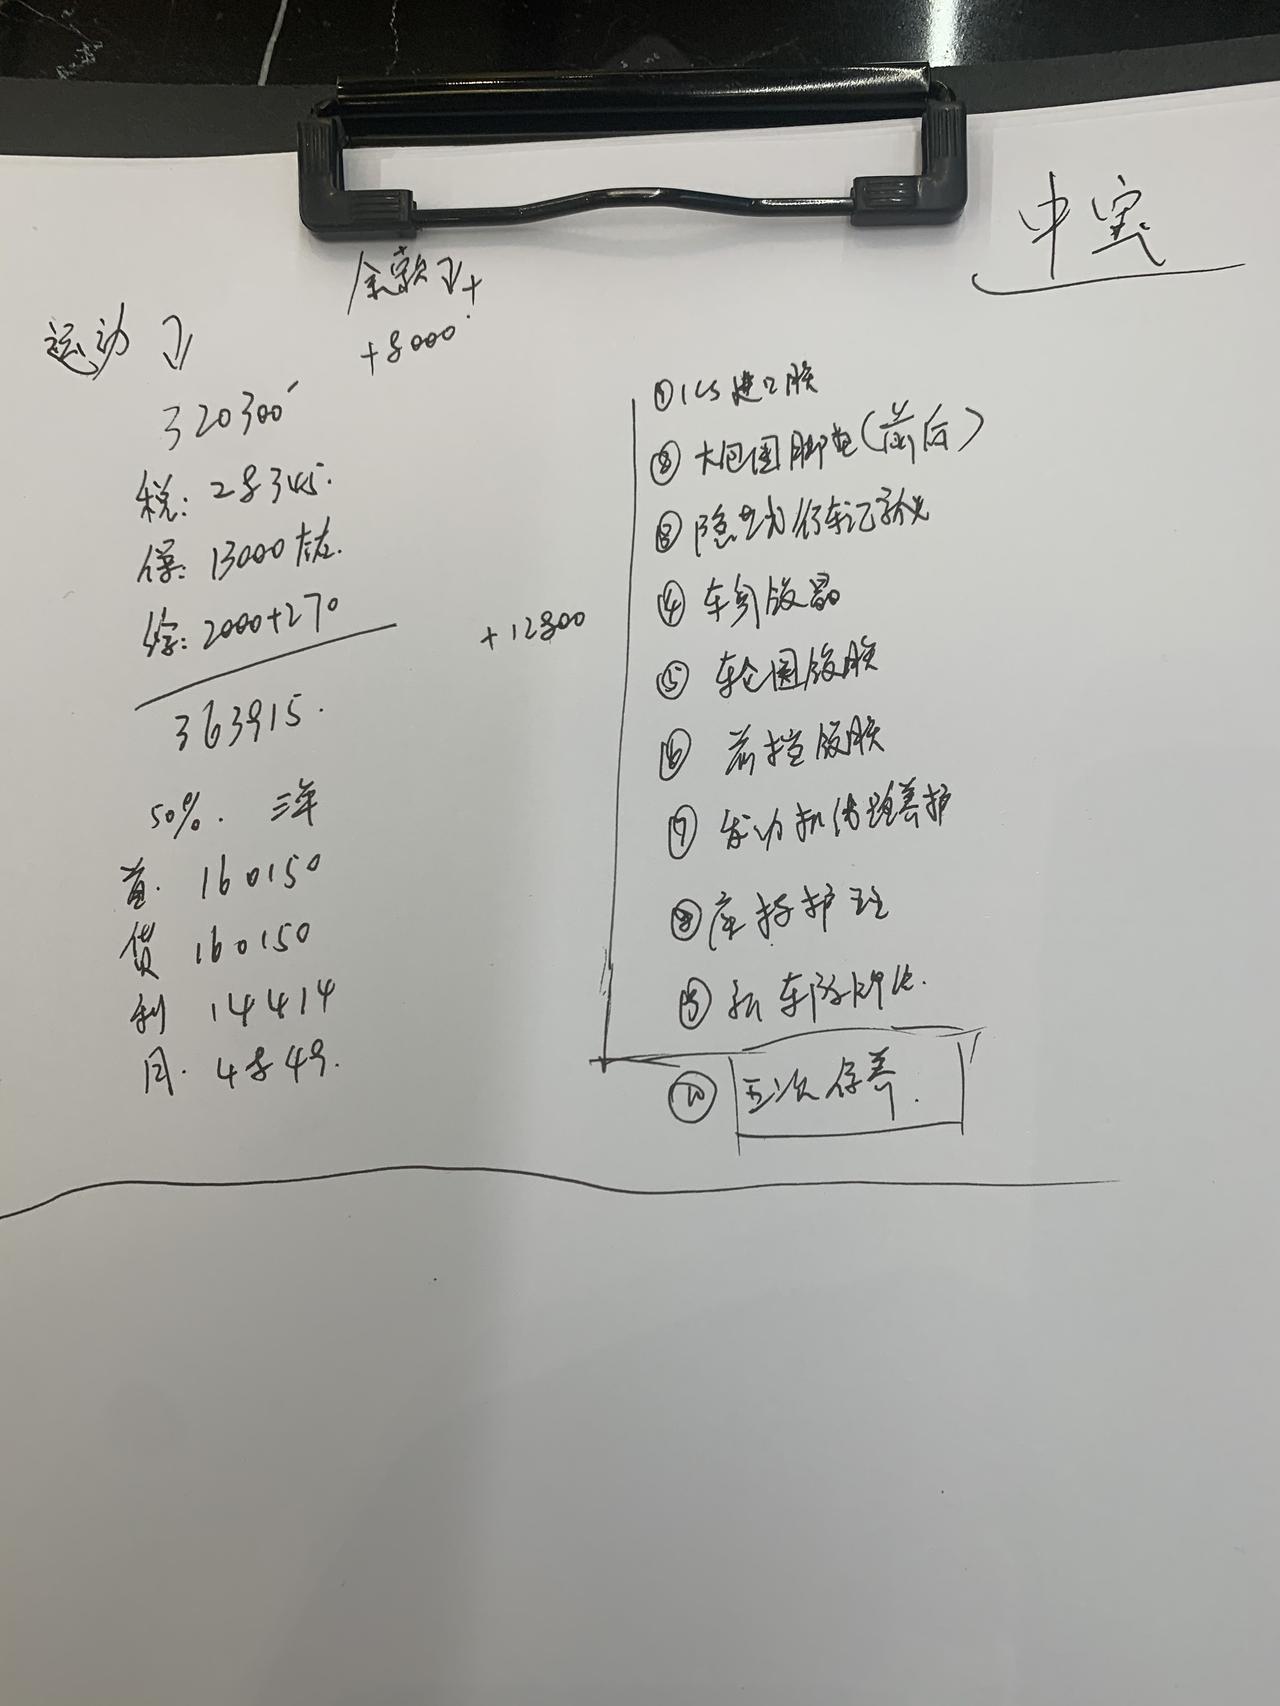 中宝
全款
+8000
运动
320300
税: 28345.
保: 13000左右.
综: 2000+270
363915.
50%. 三年
首. 160150
贷 160150
利 14414
月. 4849.
+12800
① ICS进口膜
② 大包围脚垫(前后)
③ 隐形行车记录仪
④ 车身镀晶
⑤ 轮圈镀膜
⑥ 前挡镀膜
⑦ 发动机线路养护
⑧ 座椅护理
⑨ 新车除甲醛.
⑩ 五次保养.